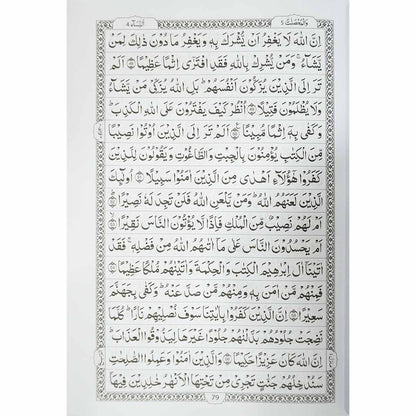 وَالْمُحْصَنٰتُ ٥
اَلنِّسَآء ٤
اِنَّ اللّٰهَ لَا يَغْفِرُ اَنْ يُّشْرَكَ بِهٖ وَيَغْفِرُ مَا دُوْنَ ذٰلِكَ لِمَنْ
يَّشَآءُ ۚ وَمَنْ يُّشْرِكْ بِاللّٰهِ فَقَدِ افْتَرٰٓى اِثْمًا عَظِيْمًا ﴿۴۸﴾ اَلَمْ
تَرَ اِلَى الَّذِيْنَ يُزَكُّوْنَ اَنْفُسَهُمْ ؕ بَلِ اللّٰهُ يُزَكِّىْ مَنْ يَّشَآءُ
وَلَا يُظْلَمُوْنَ فَتِيْلًا ﴿۴۹﴾ اُنْظُرْ كَيْفَ يَفْتَرُوْنَ عَلَى اللّٰهِ الْكَذِبَ ؕ
وَكَفٰى بِهٖۤ اِثْمًا مُّبِيْنًا ﴿۵۰﴾ اَلَمْ تَرَ اِلَى الَّذِيْنَ اُوْتُوْا نَصِيْبًا
مِّنَ الْكِتٰبِ يُؤْمِنُوْنَ بِالْجِبْتِ وَالطَّاغُوْتِ وَيَقُوْلُوْنَ لِلَّذِيْنَ
كَفَرُوْا هٰٓؤُلَآءِ اَهْدٰى مِنَ الَّذِيْنَ اٰمَنُوْا سَبِيْلًا ﴿۵۱﴾ اُولٰٓئِكَ
الَّذِيْنَ لَعَنَهُمُ اللّٰهُ ؕ وَمَنْ يَّلْعَنِ اللّٰهُ فَلَنْ تَجِدَ لَهٗ نَصِيْرًا ﴿۵۲﴾
اَمْ لَهُمْ نَصِيْبٌ مِّنَ الْمُلْكِ فَاِذًا لَّا يُؤْتُوْنَ النَّاسَ نَقِيْرًا ﴿۵۳﴾
اَمْ يَحْسُدُوْنَ النَّاسَ عَلٰى مَاۤ اٰتٰىهُمُ اللّٰهُ مِنْ فَضْلِهٖ ۚ فَقَدْ
اٰتَيْنَاۤ اٰلَ اِبْرٰهِيْمَ الْكِتٰبَ وَالْحِكْمَةَ وَاٰتَيْنٰهُمْ مُّلْكًا عَظِيْمًا ﴿۵۴﴾
فَمِنْهُمْ مَّنْ اٰمَنَ بِهٖ وَمِنْهُمْ مَّنْ صَدَّ عَنْهُ ؕ وَكَفٰى بِجَهَنَّمَ
سَعِيْرًا ﴿۵۵﴾ اِنَّ الَّذِيْنَ كَفَرُوْا بِاٰيٰتِنَا سَوْفَ نُصْلِيْهِمْ نَارًا ؕ كُلَّمَا
نَضِجَتْ جُلُوْدُهُمْ بَدَّلْنٰهُمْ جُلُوْدًا غَيْرَهَا لِيَذُوْقُوا الْعَذَابَ ؕ
اِنَّ اللّٰهَ كَانَ عَزِيْزًا حَكِيْمًا ﴿۵۶﴾ وَالَّذِيْنَ اٰمَنُوْا وَعَمِلُوا الصّٰلِحٰتِ
سَنُدْخِلُهُمْ جَنّٰتٍ تَجْرِىْ مِنْ تَحْتِهَا الْاَنْهٰرُ خٰلِدِيْنَ فِيْهَاۤ
79